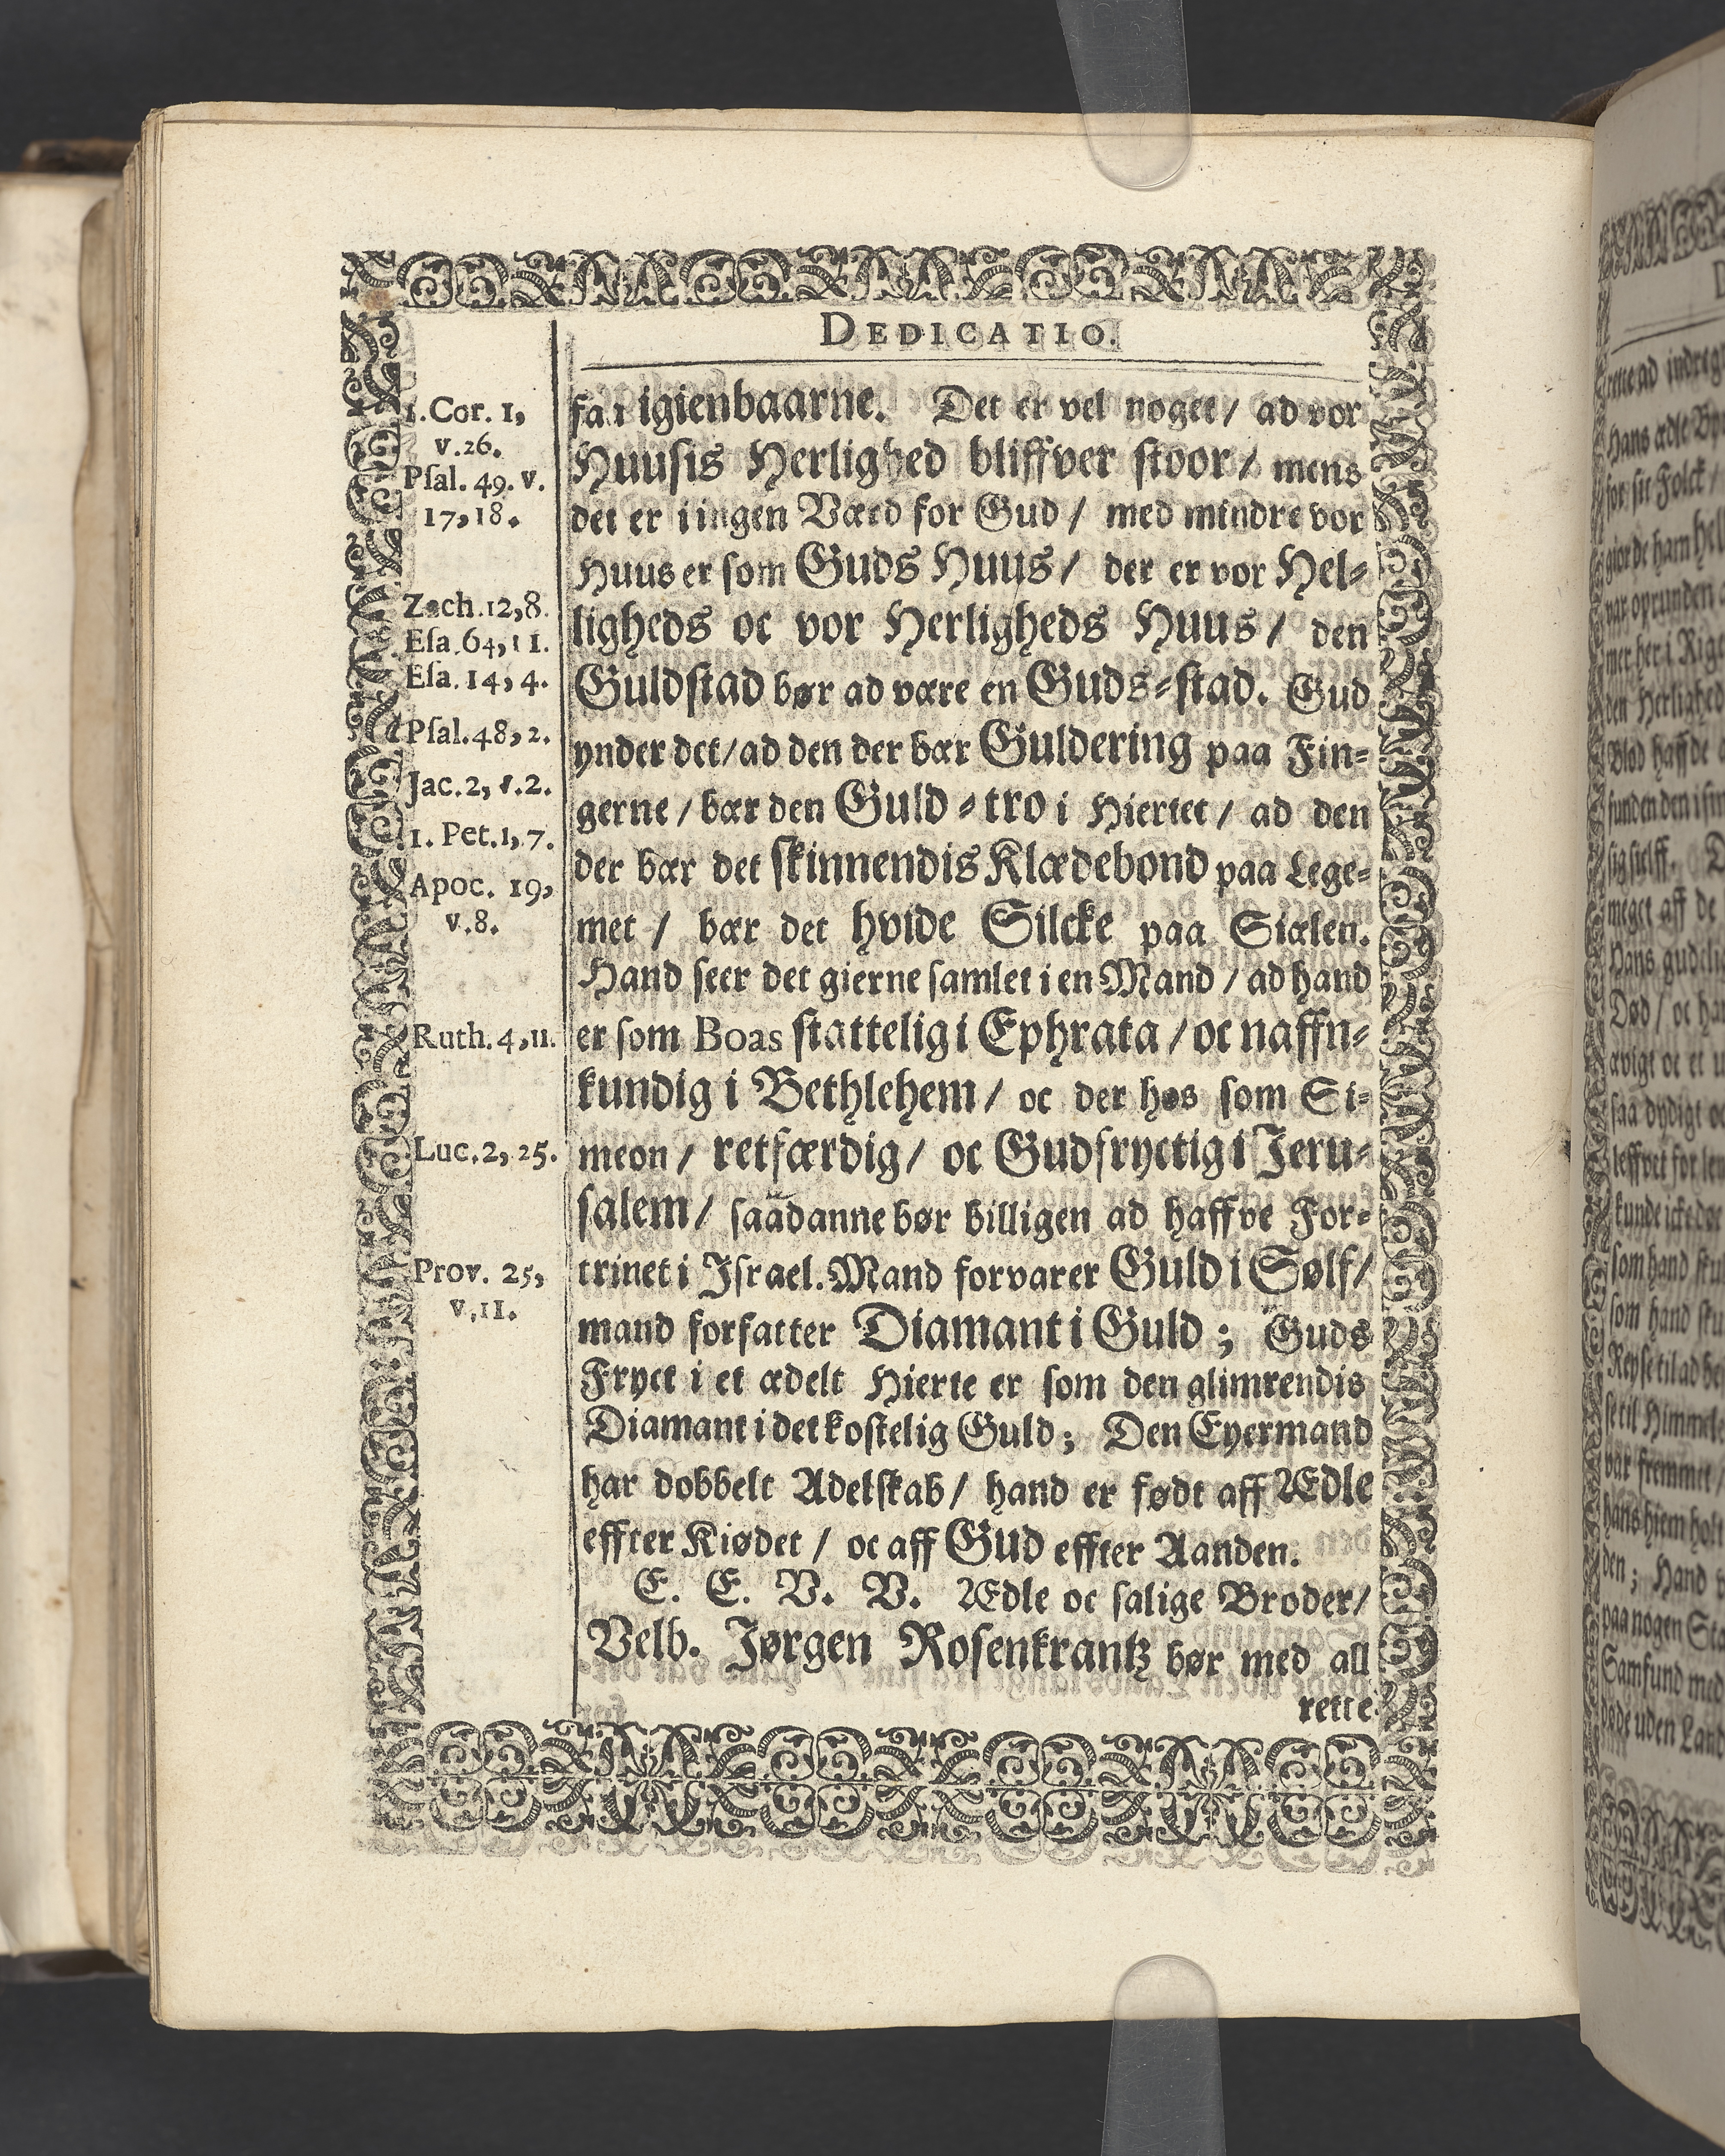 DEDICATIO.
1. Cor. 1,
v. 26.
Psal. 49. v.
17, 18.
Zach. 12, 8.
Esa. 64, 11.
Esa. 14, 4.
Psal. 48, 2.
Jac. 2, v. 2.
1. Pet. 1, 7.
Apoc. 19,
v. 8.
Ruth. 4, 11.
Luc. 2, 25.
Prov. 25,
v. 11.
igienbaarne. Det er vel noget / ad vor
Huusis Herlighed bliffver stoor / mens
det er i ingen Værd for Gud / med mindre vor
Huus er som Guds Huus / der er vor Hel-
ligheds oc vor Herligheds Huus / den
Guldstad bør ad være en Guds-stad. Gud
ynder det / ad den der bær Guldering paa Fin-
gerne / bær den Guld-tro i Hiertet / ad den
der bær det skinnendis Klædebond paa Lege-
met / bær det hvide Silcke paa Siælen.
Hand seer det gierne samlet i en Mand / ad hand
er som Boas stattelig i Ephrata / oc naffn-
kundig i Bethlehem / oc der hos som Si-
meon / retfærdig / oc Gudfryctig i Jeru-
salem / saadanne bør billigen ad haffve For-
trinet i Israel. Mand forvarer Guld i Sølf /
mand forfatter Diamant i Guld ; Guds
Fryct i et ædelt Hierte er som den glimrendis
Diamant i det kostelig Guld ; Den Eyermand
har dobbelt Adelskab / hand er født aff Ædle
effter Kiødet / oc aff Gud effter Aanden.
E. E. V. V. Ædle oc salige Broder /
Velb. Jørgen Rosenkrantz bør med all
rette